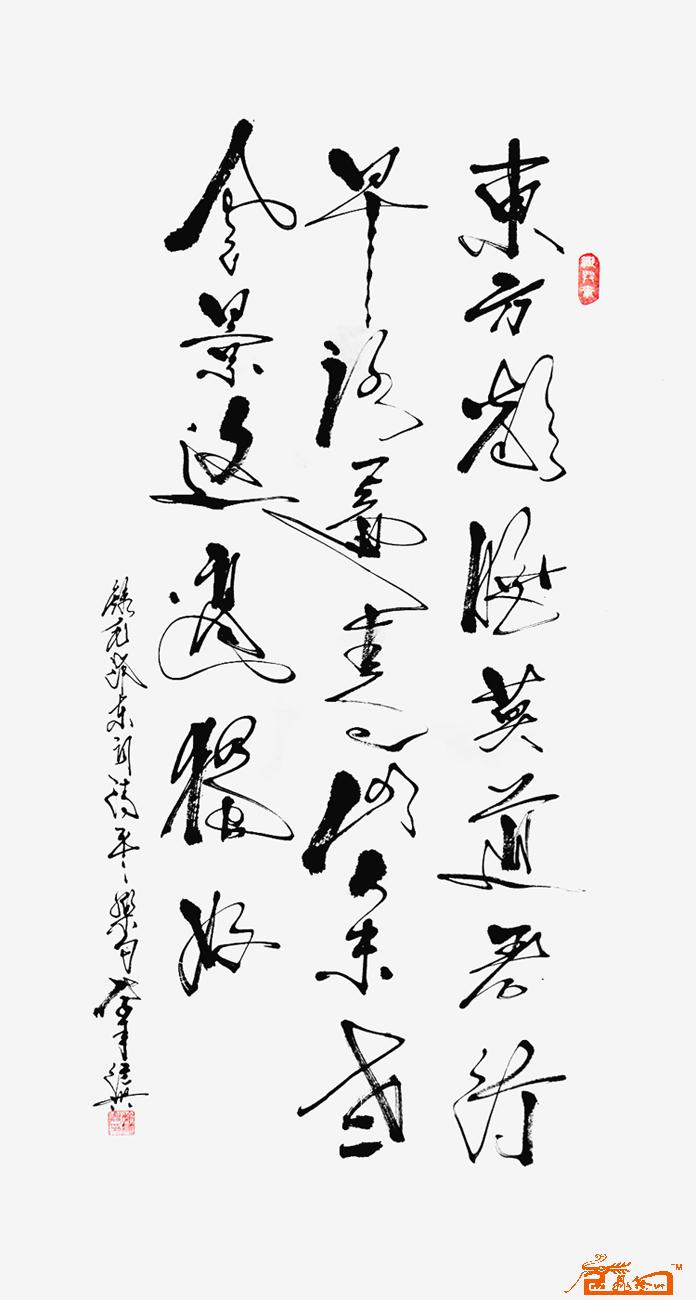 東方欲曉莫道君行
早踏遍青山人未老
風景這邊獨好
錄毛澤東詞清平樂句